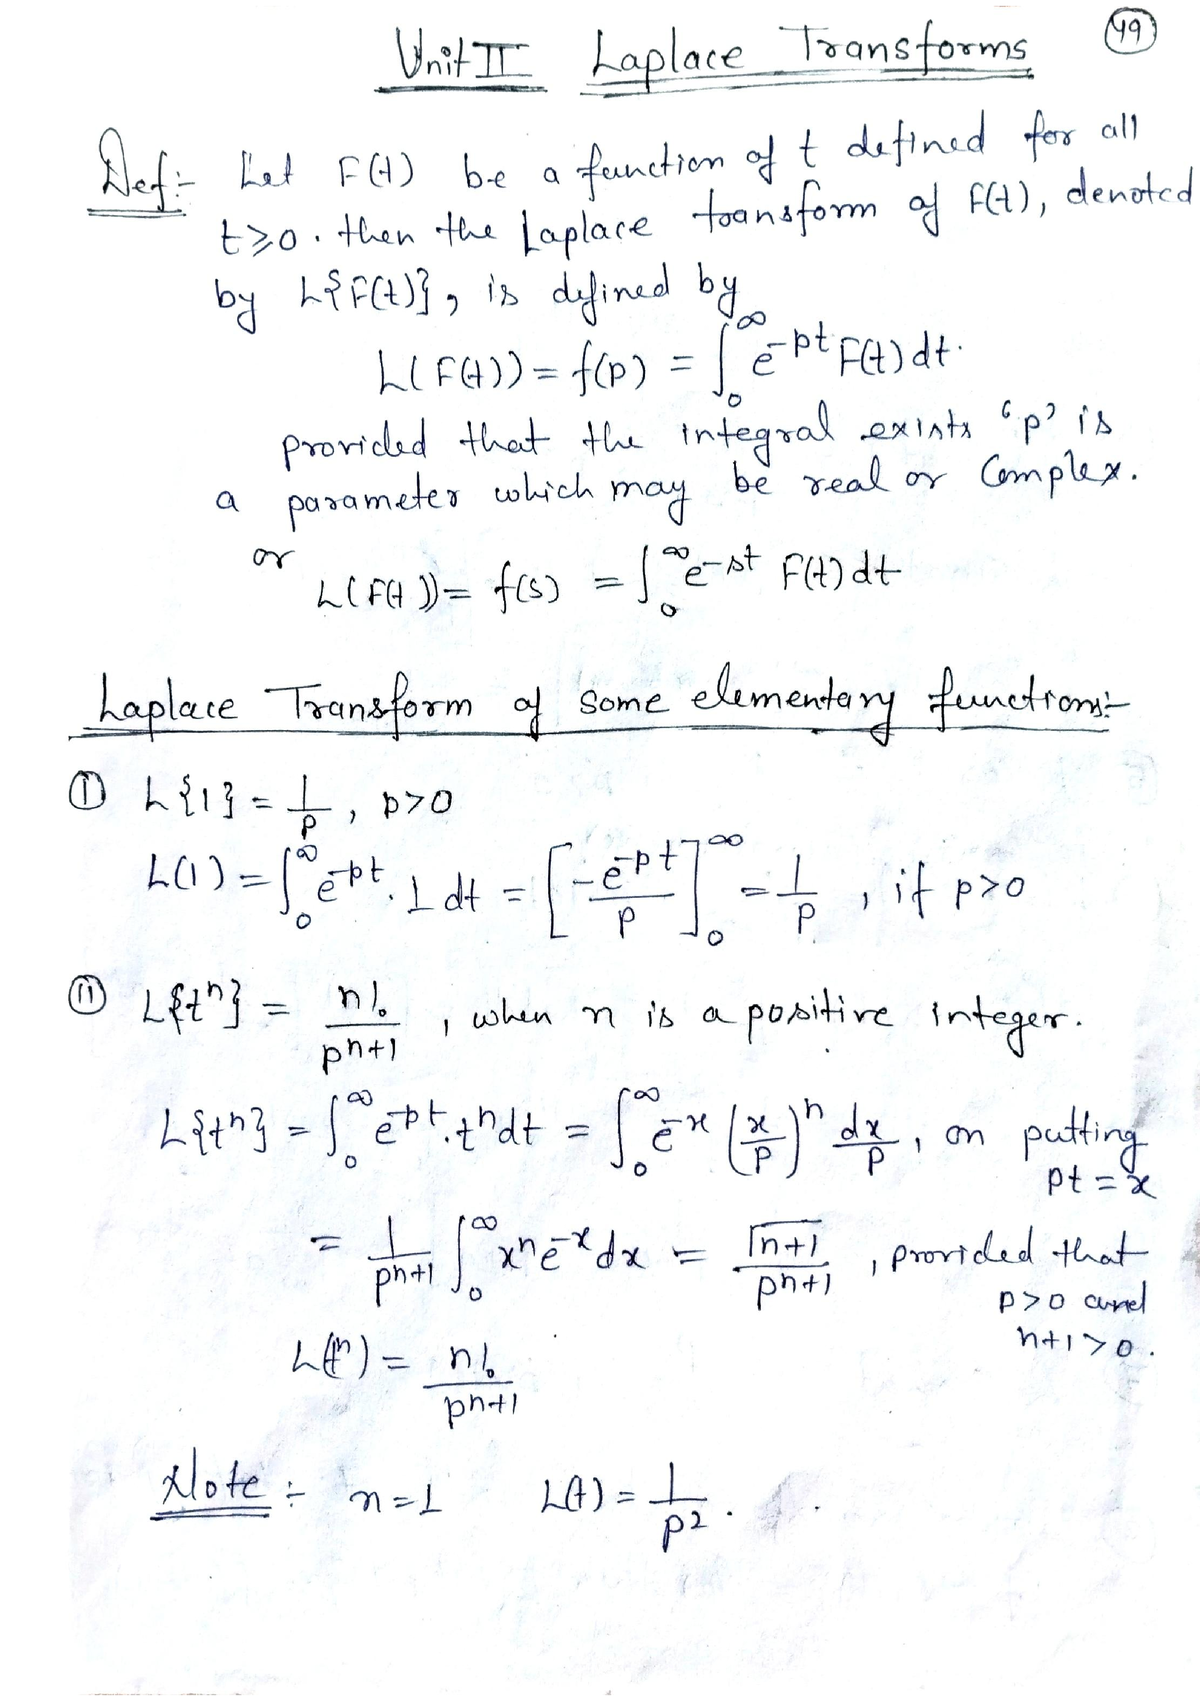 Unit II Laplace Transforms 49
Def:- Let F(t) be a function of t defined for all
t≥0. then the Laplace transform of F(t), denoted
by L{F(t)}, is defined by
L(F(t)) = f(p) = ∫₀^∞ e^-pt F(t) dt.
provided that the integral exists 'p' is
a parameter which may be real or Complex.
or
L(F(t)) = f(s) = ∫₀^∞ e^-st F(t) dt
Laplace Transform of some elementary functions:-
(I) L{1} = 1/p, p>0
L(1) = ∫₀^∞ e^-pt. 1 dt = [-e^-pt/p]₀^∞ = 1/p, if p>0
(II) L{t^n} = n!/p^n+1, when n is a positive integer.
L{t^n} = ∫₀^∞ e^-pt. t^n dt = ∫₀^∞ e^-x (x/p)^n dx/p, on putting
pt = x
= 1/p^n+1 ∫₀^∞ x^n e^-x dx = Γn+1/p^n+1, provided that
p>0 and
n+1>0.
L(t^n) = n!/p^n+1
Note :- n=1 L(t) = 1/p².